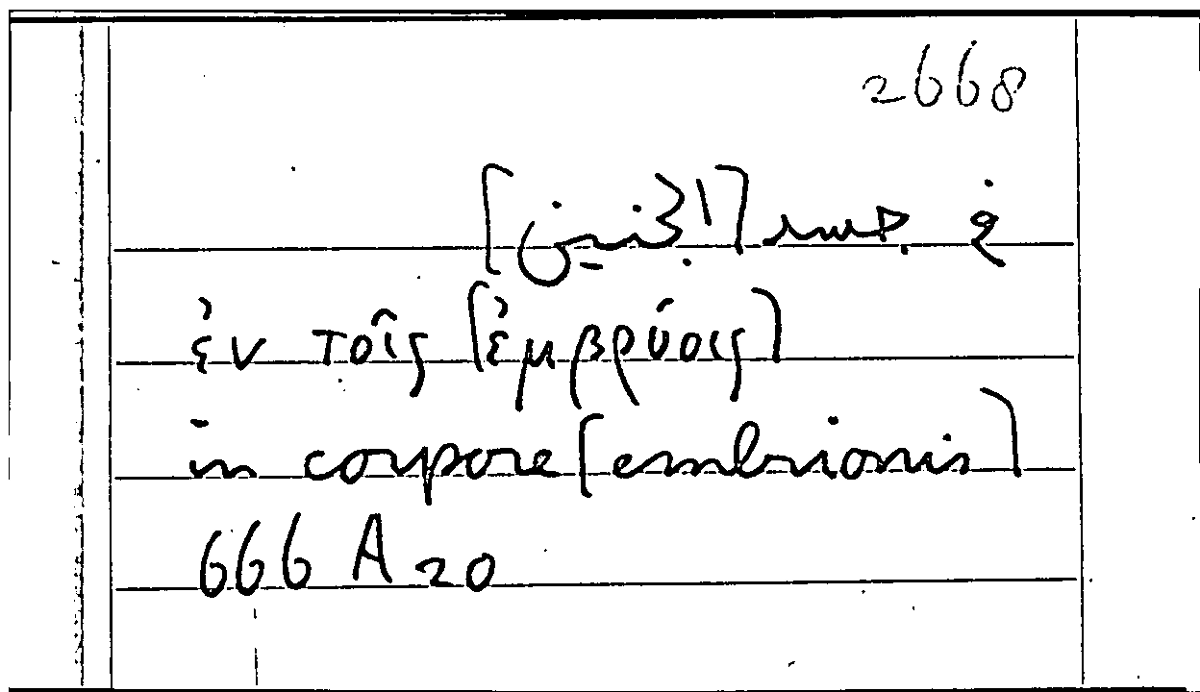 2668
في جسد [الجنين]
ἐν τοῖς [ἐμβρύοις]
in corpore [embrionis]
666 A 20